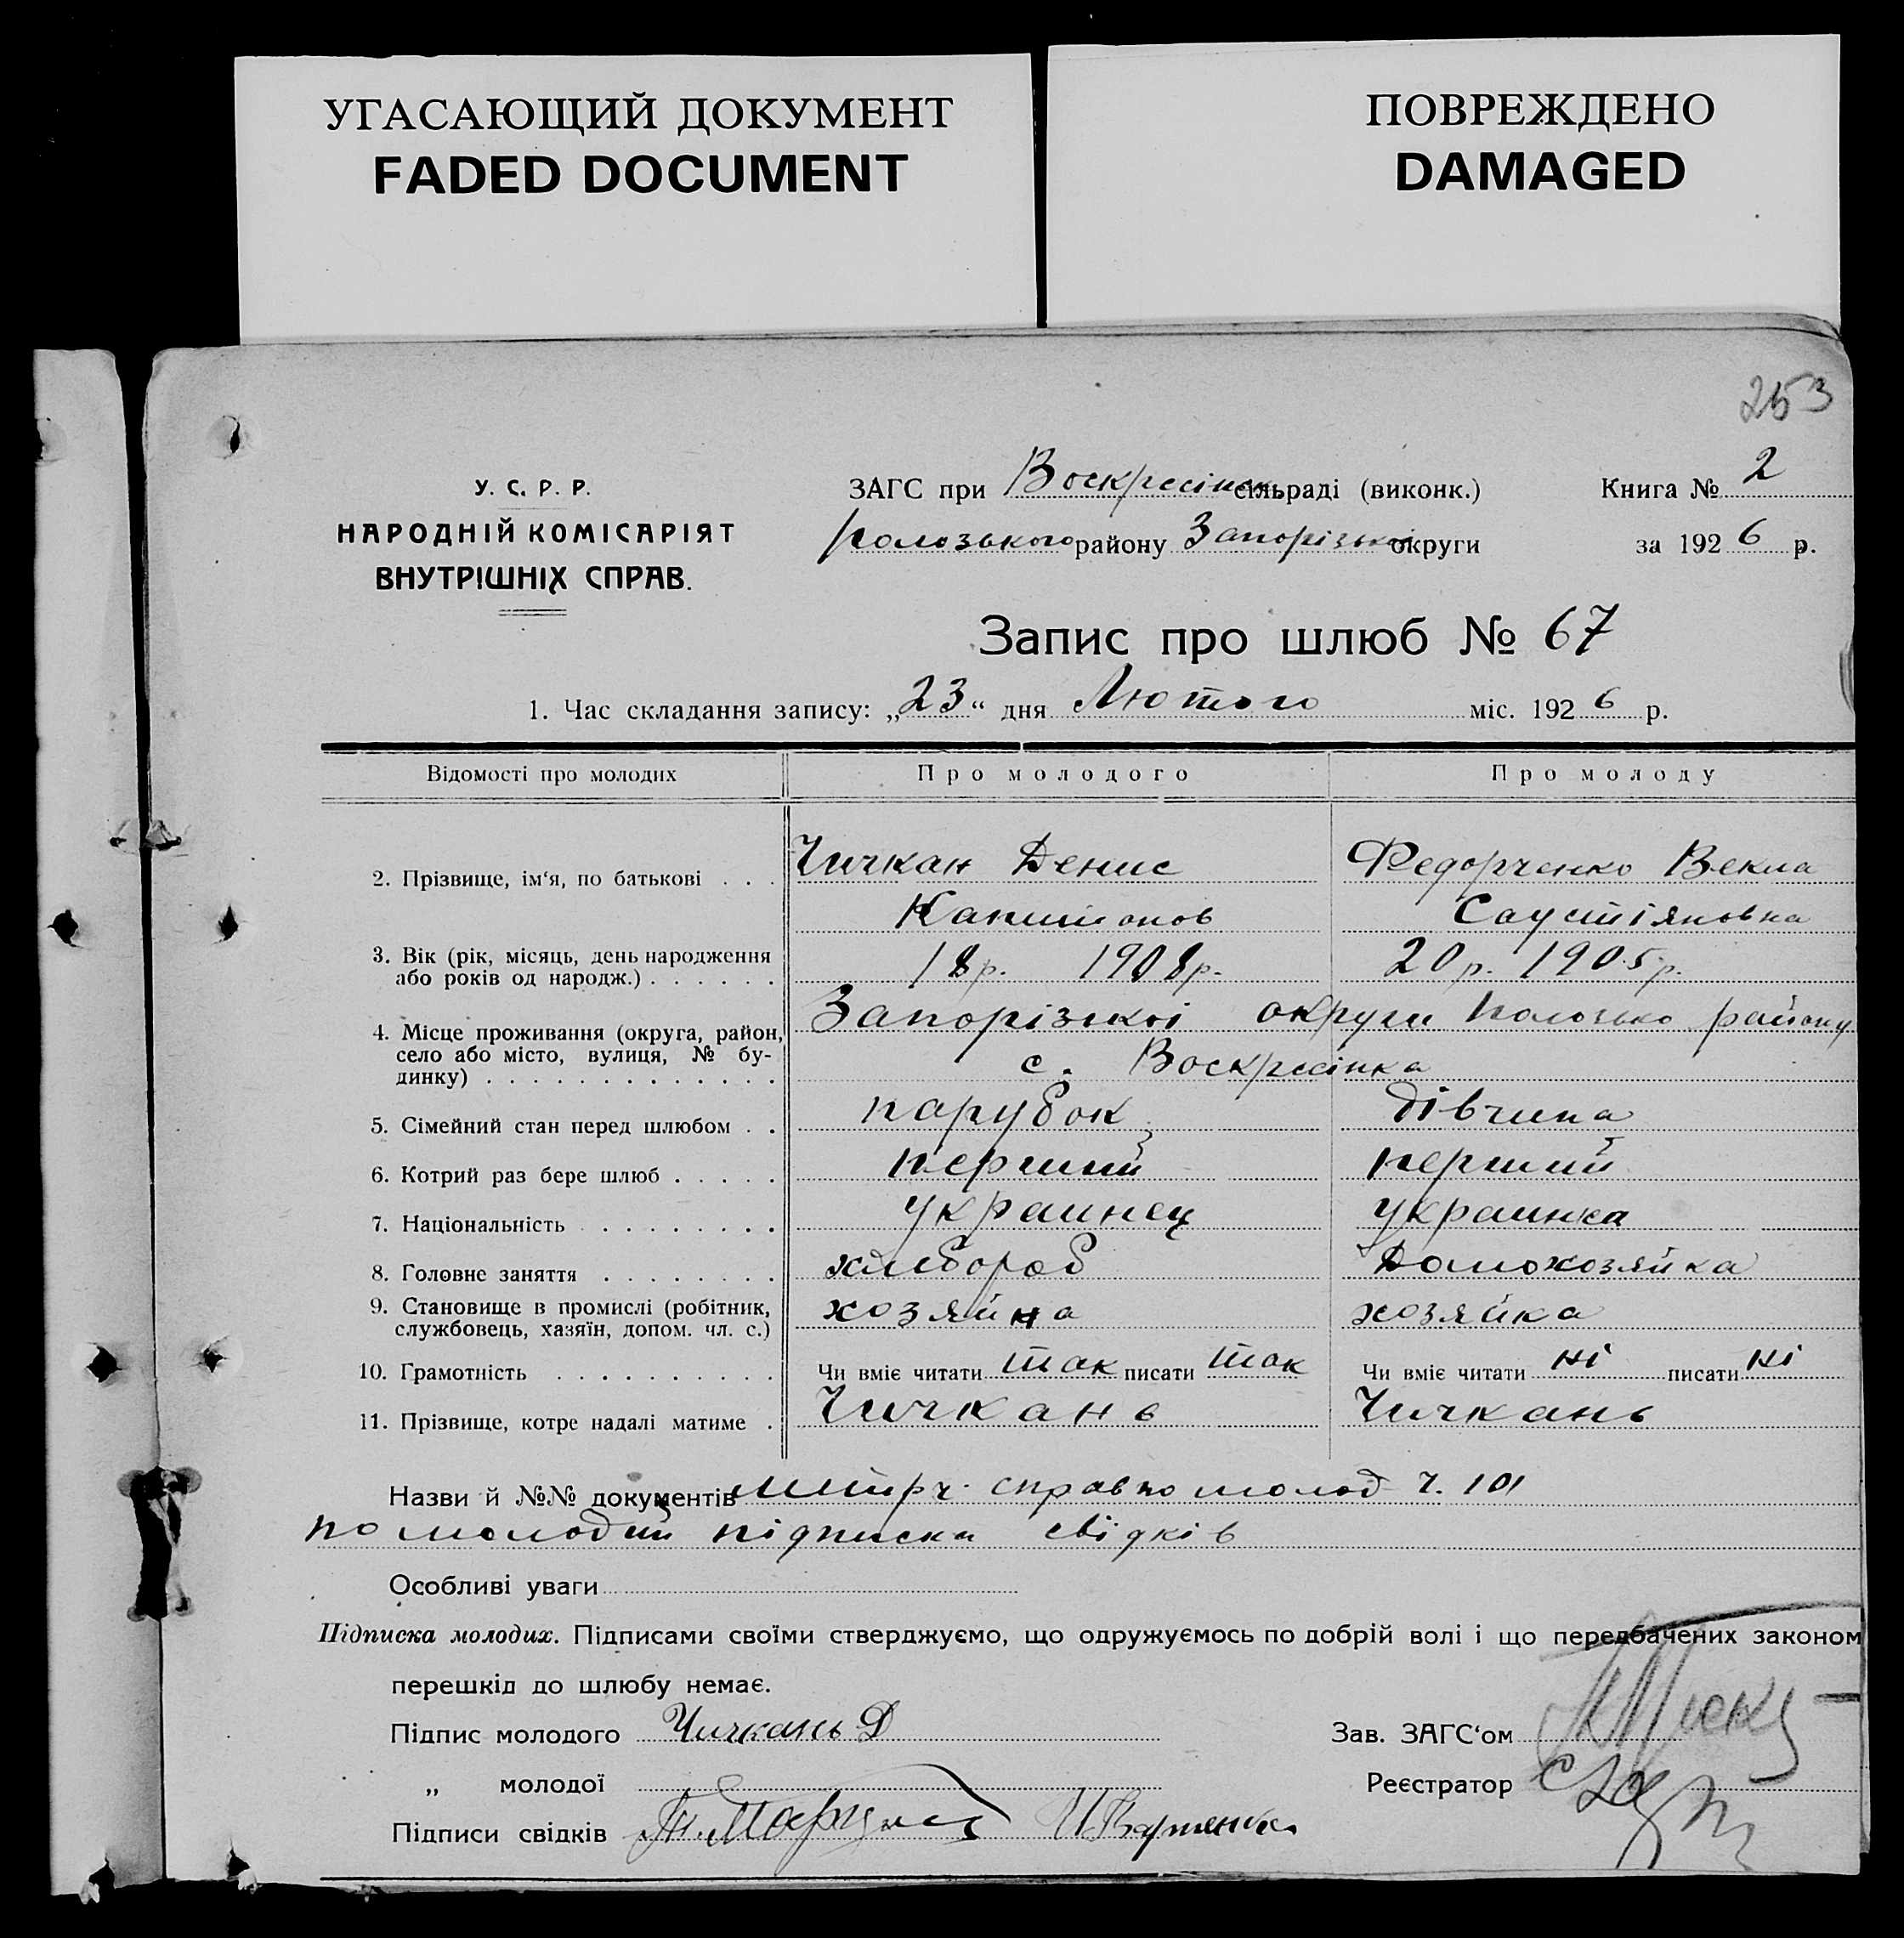 УГАСАЮЩИЙ ДОКУМЕНТ
FADED DOCUMENT
ПОВРЕЖДЕНО
DAMAGED
253
У. С. Р. Р.
НАРОДНІЙ КОМІСАРІЯТ
ВНУТРІШНІХ СПРАВ.
ЗАГС при Воскресінск. сільраді (виконк.)
Полозького району Запорізькоі округи
Книга № 2
за 1926 р.
Запис про шлюб № 67
1. Час складання запису: „23“ дня Лютого міс. 1926 р.
Відомості про молодих Про молодого Про молоду
2. Прізвище, ім‘я, по батькові . . . Чичкан Денис Федорченко Векла
Капитонов Саустіяновна
3. Вік (рік, місяць, день народження
або років од народж.) . . . . . . 18 р. 1908 р. 20 р. 1905 р.
4. Місце проживання (округа, район, Запорізкоі округи Полозько району
село або місто, вулиця, № бу-
динку) . . . . . . . . . . . . . с. Воскресінка
5. Сімейний стан перед шлюбом . . парубок дівчина
6. Котрий раз бере шлюб . . . . . перший перший
7. Національність . . . . . . . . украинец украинка
8. Головне заняття . . . . . . . . хлібороб Домохозяйка
9. Становище в промислі (робітник,
службовець, хазяїн, допом. чл. с.) хозяйна хозяйка
10. Грамотність . . . . . . . . . . Чи вміє читати так писати так Чи вміє читати ні писати ні
11. Прізвище, котре надалі матиме . Чичкань Чичкань
Назви й №№ документів справко молод ч. 101
по молодий підписка свідків
Особливі уваги
Підписка молодих. Підписами своїми стверджуємо, що одружуємось по добрій волі і що передбачених законом
перешкід до шлюбу немає.
Підпис молодого Чичкань Д
„ молодої
Підписи свідків
Зав. ЗАГС‘ом
Реєстратор